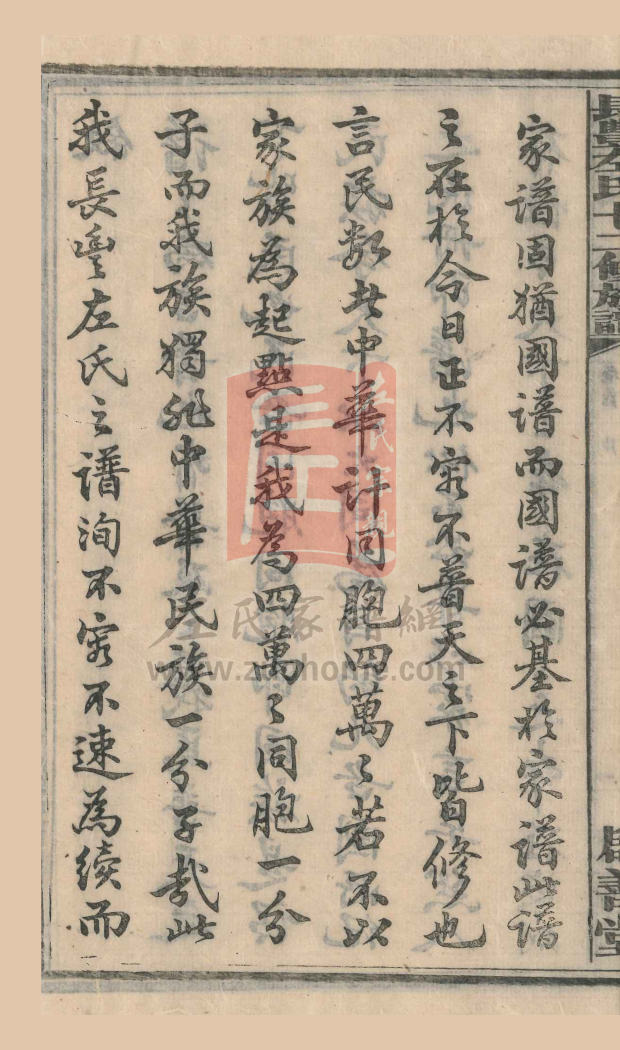 長豐左氏十二修族譜
家譜固猶國譜而國譜必基於家譜此譜
之在於今日正不容不普天之下皆修也
言民数於中華計同胞四萬〻若不以
家族為起點是我為四萬〻同胞一分
子而我族獨非中華民族一分子哉此
我長豐左氏之譜洵不容不速為續而
左氏家譜網
www.zuohome.com